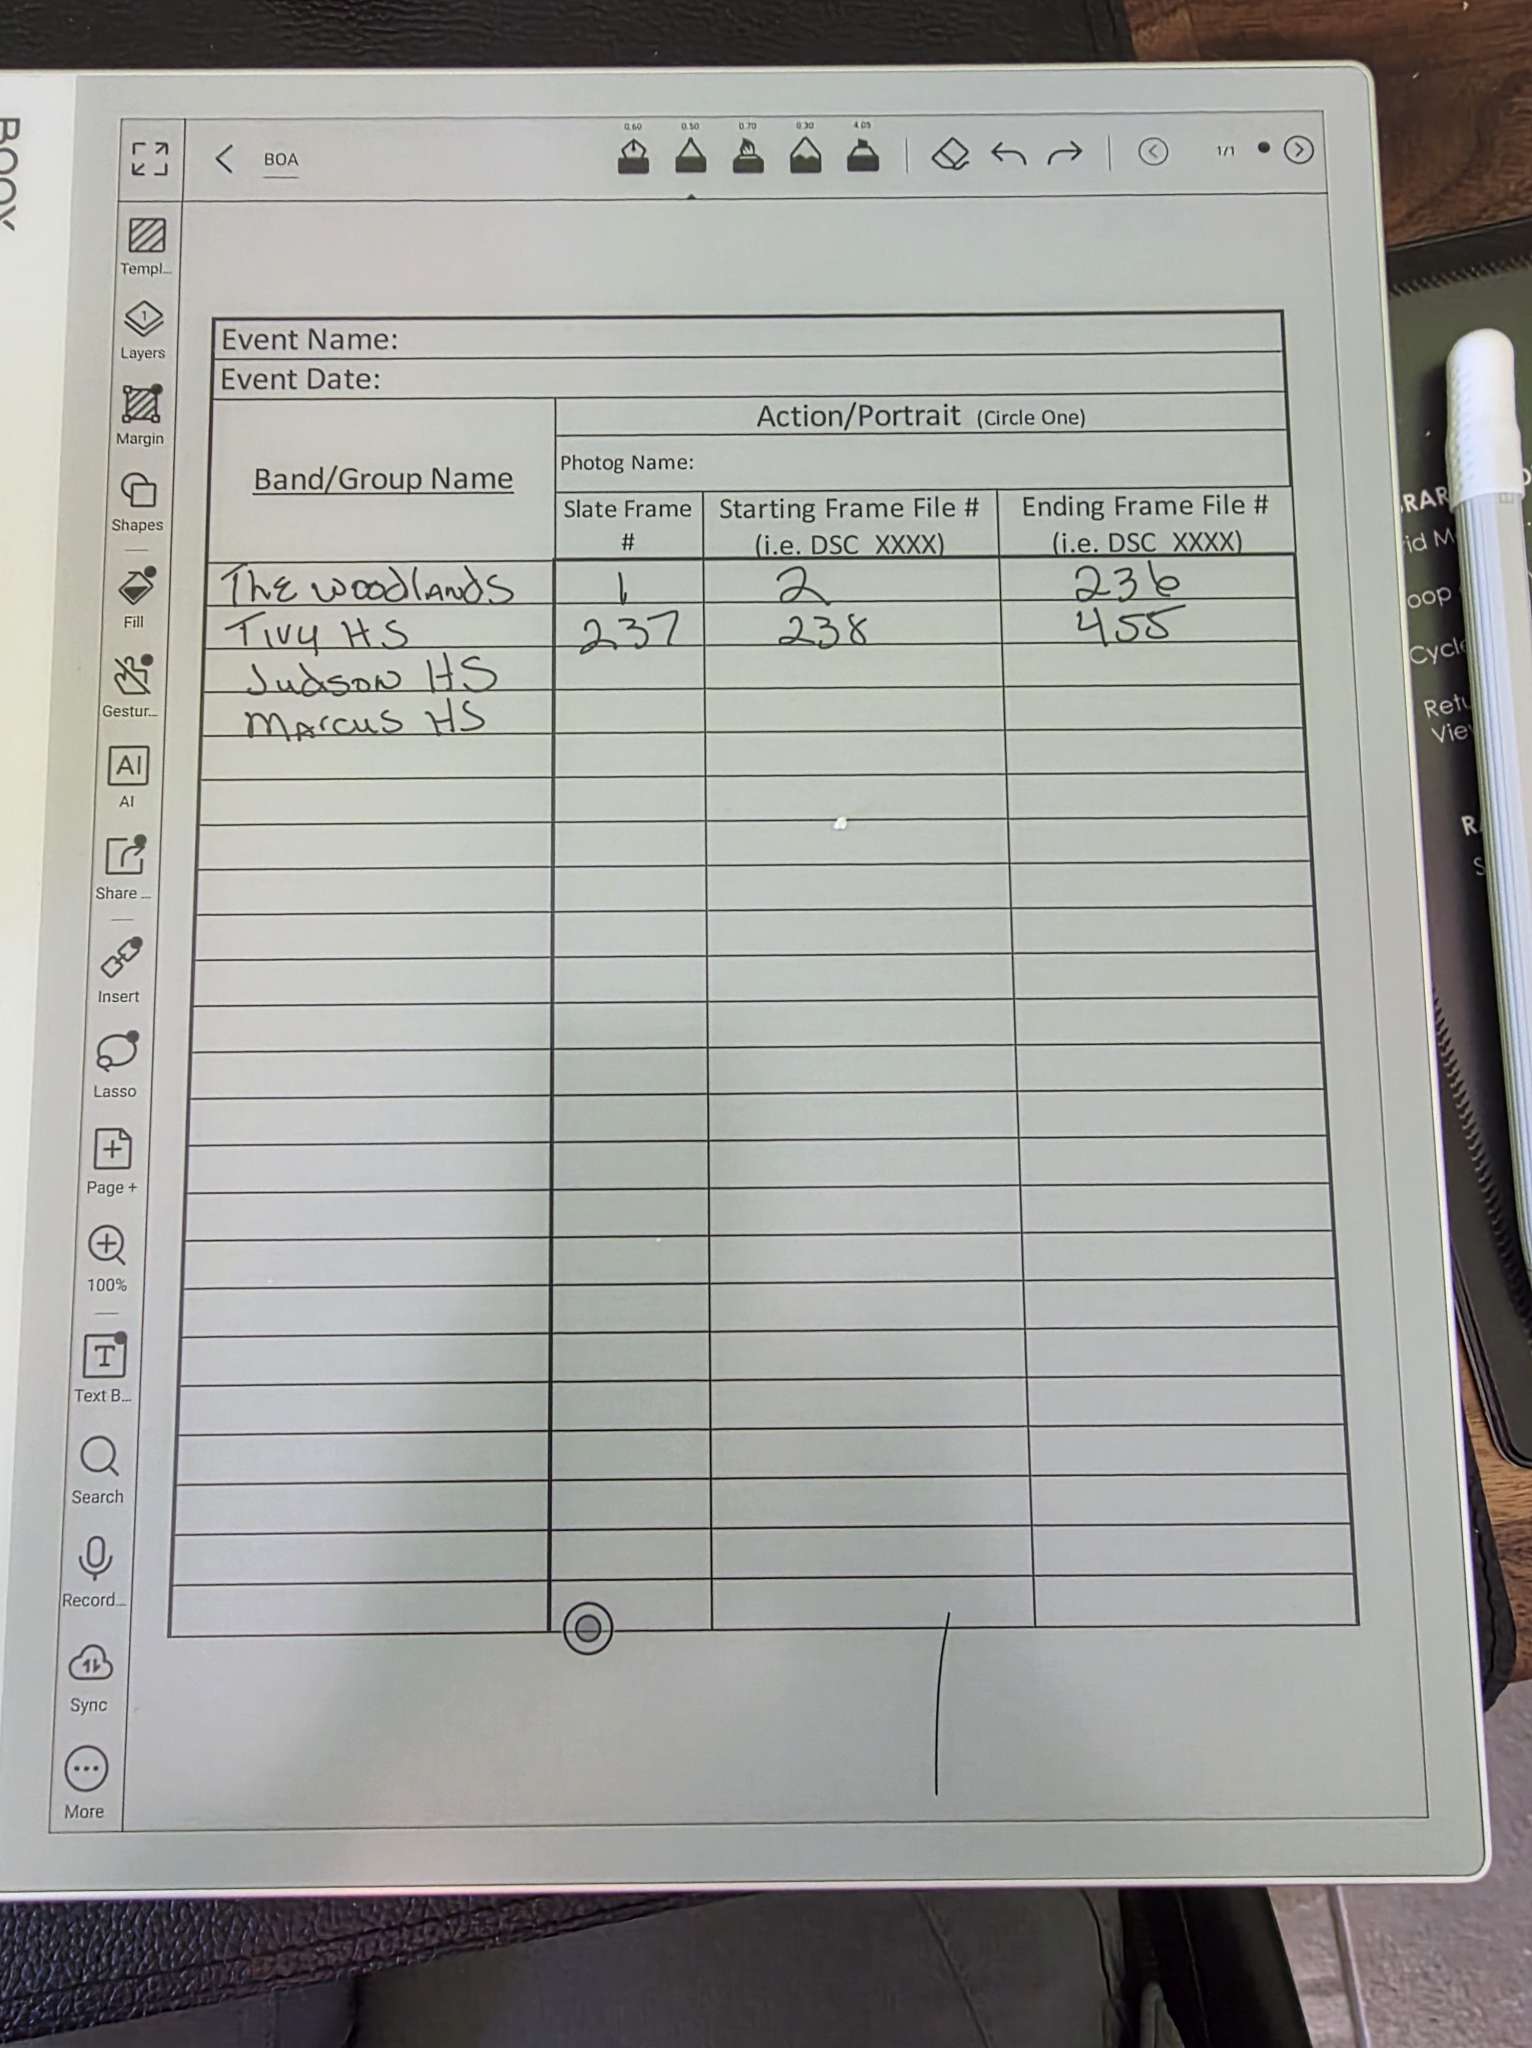 BOOX
BOA
0.60 0.50 0.70 0.30 4.05
1/1
Templ...
1
Layers
Margin
Shapes
Fill
Gestur...
AI
AI
Share ...
Insert
Lasso
Page +
100%
T
Text B...
Search
Record...
Sync
More
Event Name:
Event Date:
Band/Group Name
Action/Portrait (Circle One)
Photog Name:
Slate Frame # Starting Frame File # (i.e. DSC_XXXX) Ending Frame File # (i.e. DSC_XXXX)
The Woodlands 1 2 236
Tivy HS 237 238 455
Judson HS
Marcus HS